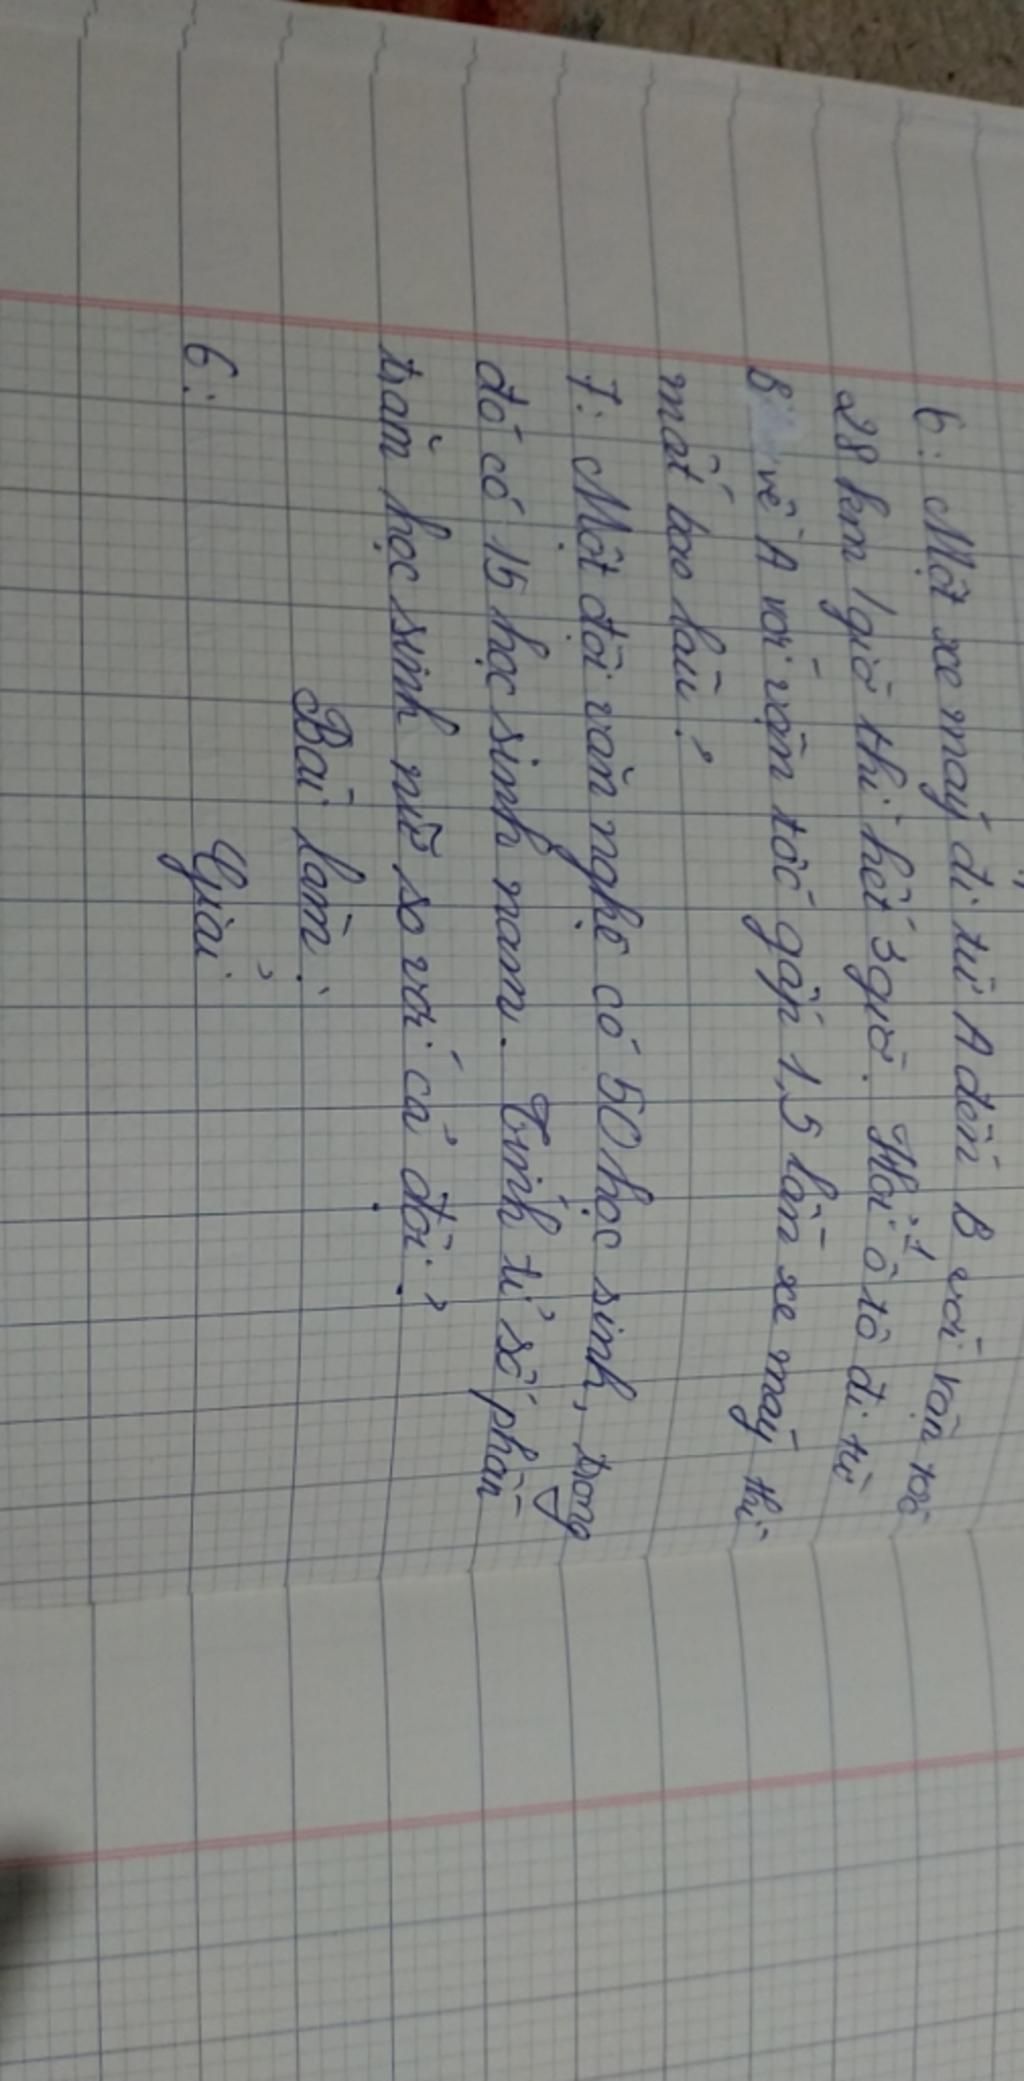 6: Một xe máy đi từ A đến B với vận tốc
28 km/giờ thì hết 3 giờ. Hỏi 1 ô tô đi từ
B về A với vận tốc gấp 1,5 lần xe máy thì
mất bao lâu?
7: Một đội văn nghệ có 50 học sinh, trong
đó có 15 học sinh nam. Tính tỉ số phần
trăm học sinh nữ so với cả đội?
Bài làm:
6: Giải